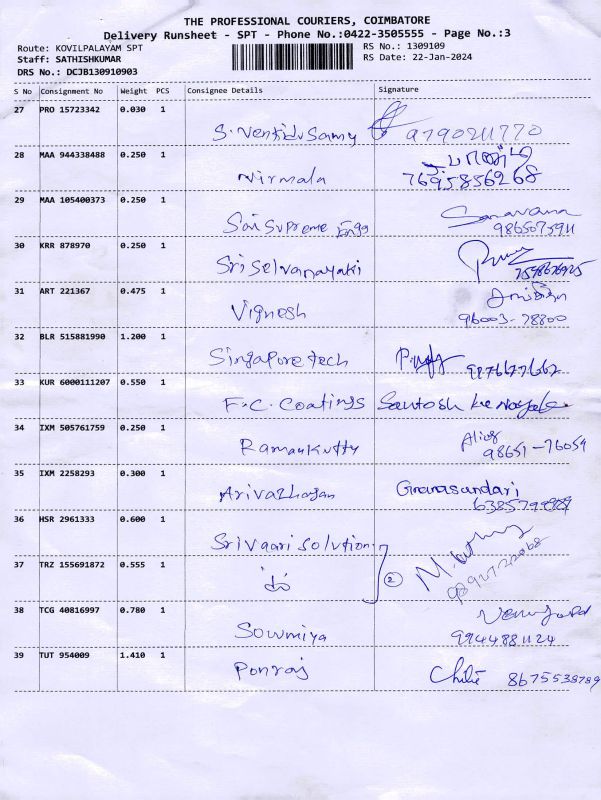 THE PROFESSIONAL COURIERS, COIMBATORE
Delivery Runsheet - SPT - Phone No.:0422-3505555 - Page No.:3
Route: KOVILPALAYAM SPT
RS No.: 1309109
Staff: SATHISHKUMAR
RS Date: 22-Jan-2024
DRS No.: DCJB130910903
S No Consignment No Weight PCS Consignee Details Signature
27 PRO 15723342 0.030 1
S. Venkidu Samy 9790211770
28 MAA 944338488 0.250 1
Nirmala 7695856268
29 MAA 105400373 0.250 1
Sai Supreme Engg Saravana
9865075911
30 KRR 878970 0.250 1
Sri Selvanayaki
31 ART 221367 0.475 1
Vignesh
96003-78800
32 BLR 515881990 1.200 1
Singapore tech
33 KUR 6000111207 0.550 1
F.C. Coatings Santosh
34 IXM 505761759 0.250 1
Ramankutty
98651-76059
35 IXM 2258293 0.300 1
Arivazhagan Gnanasundari
36 HSR 2961333 0.600 1
Srivaari Solution
37 TRZ 155691872 0.555 1
do 2
38 TCG 40816997 0.780 1
Sowmiya 9944881124
39 TUT 954009 1.410 1
Ponraj 8675538789